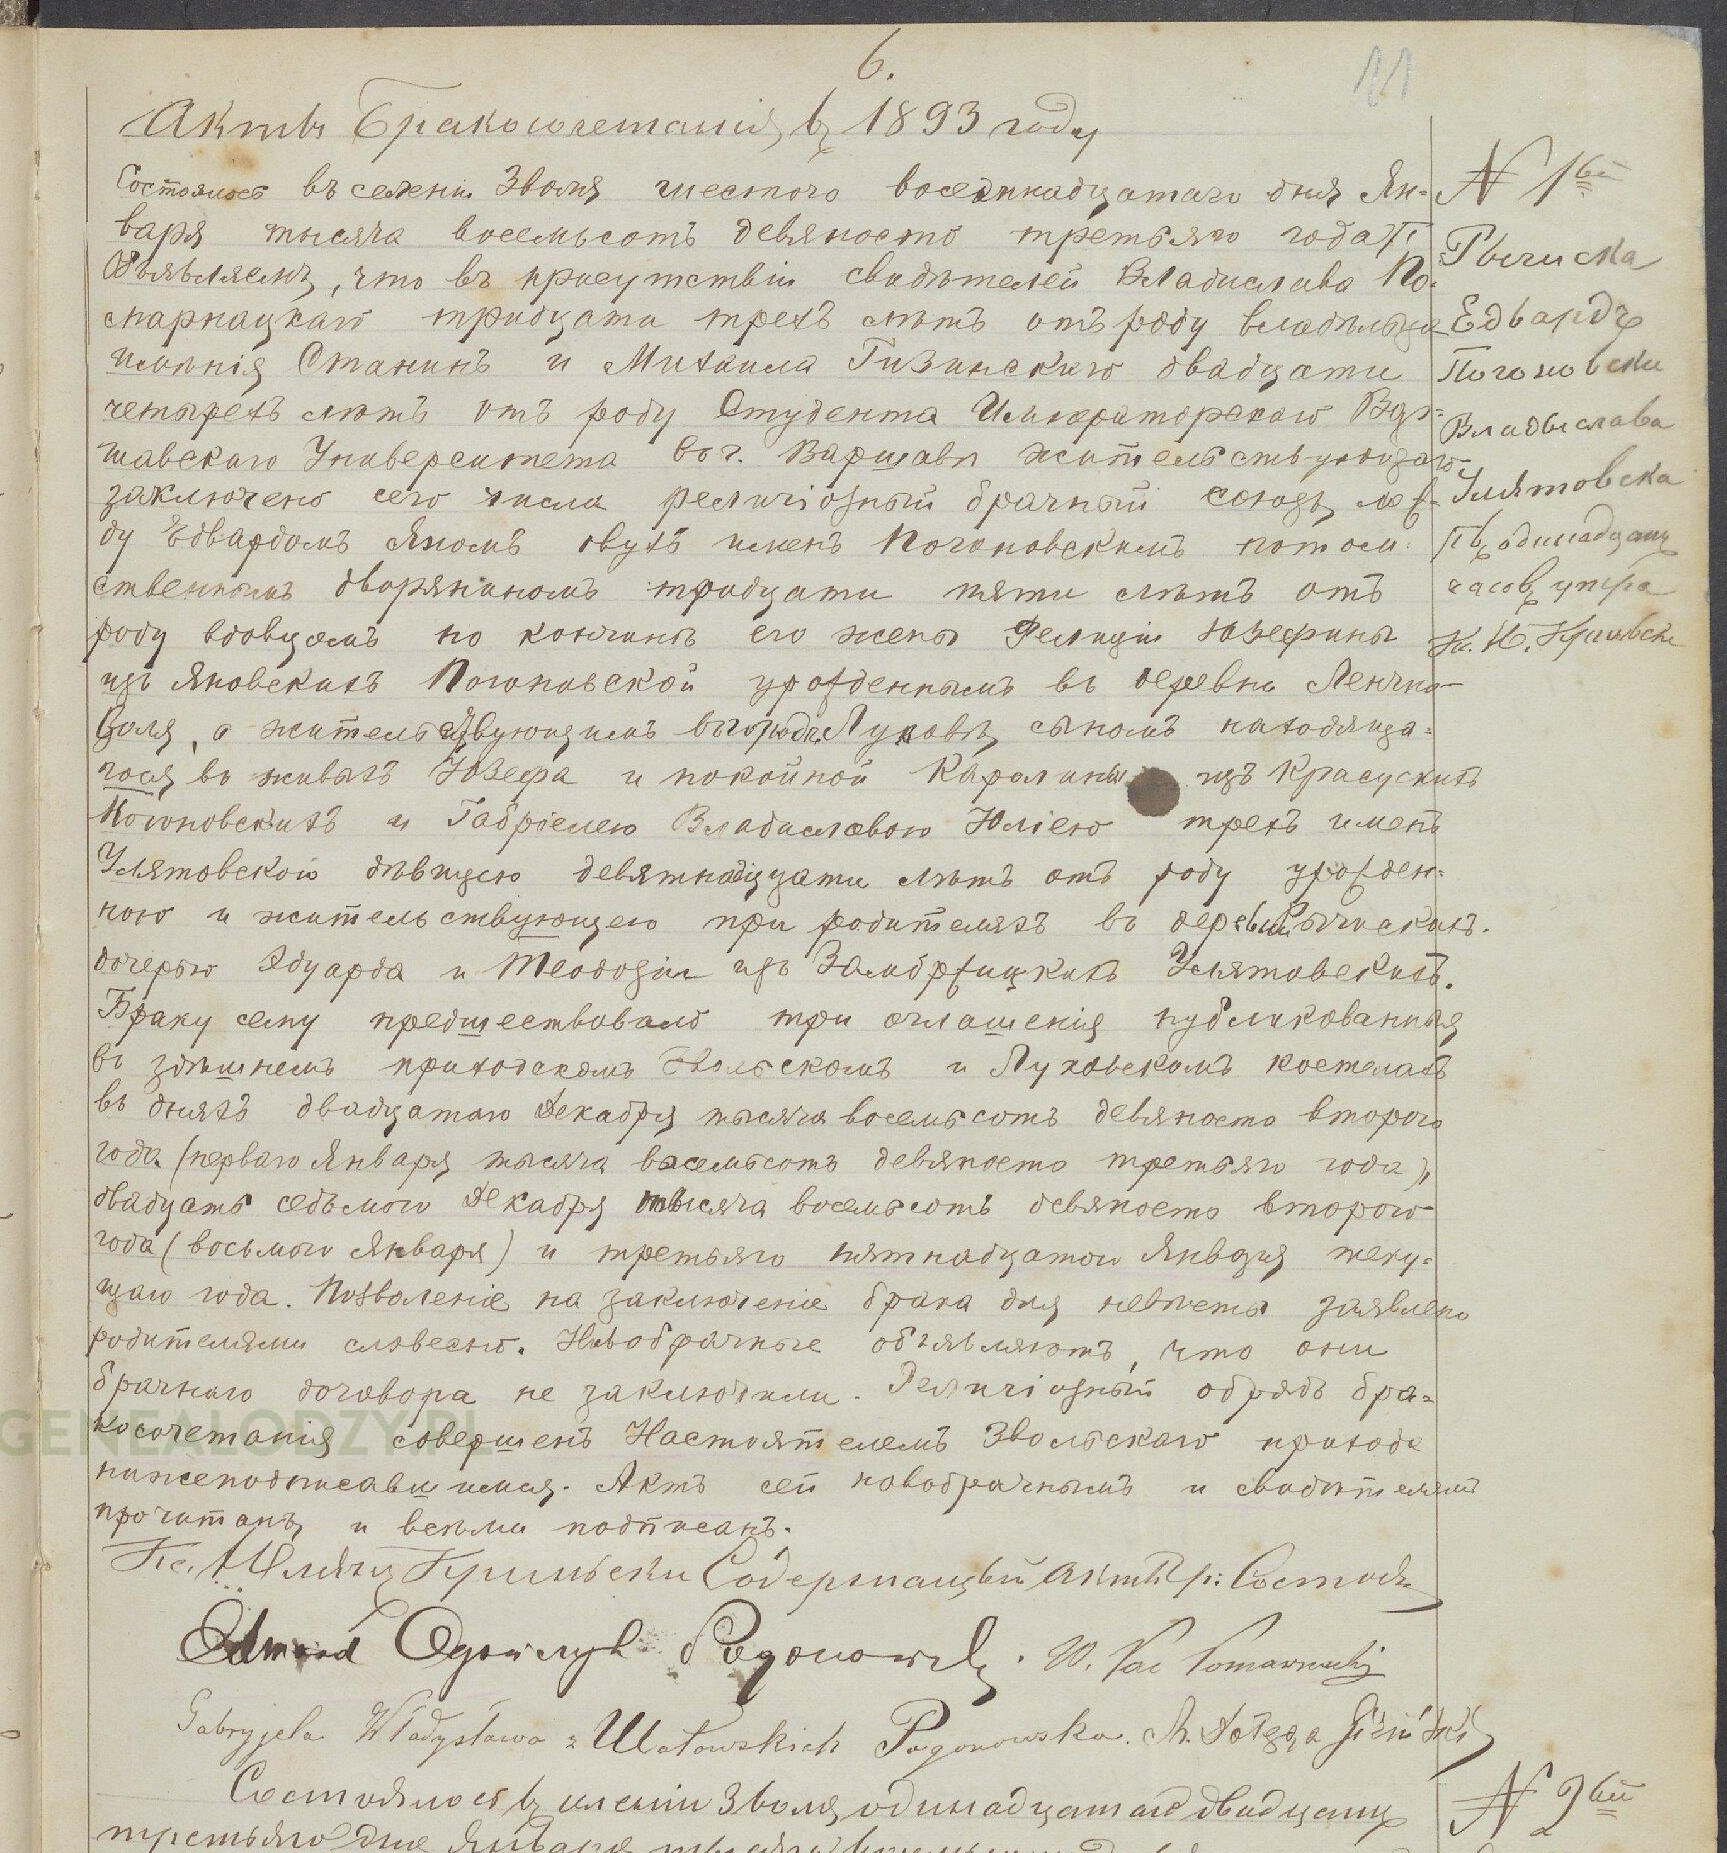 6.
11
Актъ Бракосочетанія въ 1893 году
Состоялось въ селенiи Зволя шестого восемнадцатаго дня Ян-
варя тысяча восемьсотъ девяносто третьяго года
Объявляемъ, что въ присутствіи свидѣтелей Владислава По-
марнацкаго тридцати трехъ лѣтъ отъ роду владѣльца
имѣнія Станинъ и Михаила Гизинскаго двадцати
четырехъ лѣтъ отъ роду Студента Императорскаго Вар-
шавскаго Университета во г. Варшавѣ жительствующаго
заключено сего числа религіозный брачный союзъ меж-
ду Едвардомъ Яномъ двухъ именъ Погоновскимъ потом-
ственнымъ дворяниномъ тридцати пяти лѣтъ отъ
роду вдовцемъ по кончинѣ его жены Фелиціи Юзефины
изъ Яновскихъ Погоновской урожденнымъ въ деревнѣ Ленчна
воля, а жительствующимъ въ городѣ Луковѣ, сыномъ находяща-
гося въ живыхъ Юзефа и покойной Каролины изъ Красускихъ
Погоновскихъ и Габріелею Владиславою Юліею трехъ именъ
Улятовской дѣвицею девятнадцати лѣтъ отъ роду урожден-
ною и жительствующею при родителяхъ въ деревнѣ Рычискахъ.
дочерью Эдуарда и Теодозіи изъ Замбржицкихъ Улятовскихъ.
Браку сему предшествовало три оглашенія публикованныя
въ здѣшнемъ приходскомъ Звольскомъ и Луковскомъ костелахъ
въ дняхъ двадцатаго Декабря тысяча восемьсотъ девяносто второго
года (перваго Января тысяча восемьсотъ девяносто третьяго года),
двадцать седьмого Декабря тысяча восемьсотъ девяносто второго
года (восьмого Января) и третьяго пятнадцатого Января теку-
щаго года. Позволеніе на заключеніе брака для невѣсты заявлено
родителями словесно. Новобрачные объявляютъ, что они
брачнаго договора не заключили. Религіозный обрядъ бра-
косочетанія совершенъ Настоятелемъ Звольскаго прихода
нижеподписавшимся. Актъ сей новобрачнымъ и свидѣтелямъ
прочитанъ и всѣми подписанъ.
Кс. Содержащый акты гр: Состоя
Edward Pogonowski. W. Pac Pomarnacki
Gabryjela Władysława z Ulatowskich Pogonowska. M.
Состоялось въ имѣніи Зволя одинадцатаго двадцать
третьяго дня Января тысяча
N 1вый
Рычиска
Едвардъ
Погоновски
Владыслава
Улятовска
въ одинадцать
часовъ утра
N 2вый
GENEALODZY.PL